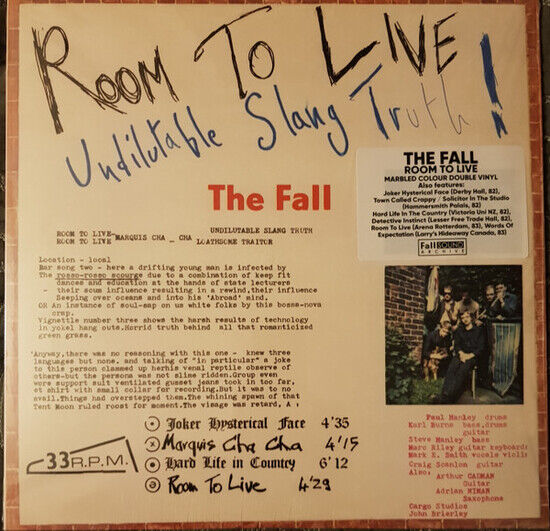 ROOM TO LIVE
Undilutable Slang Truth!
The Fall
THE FALL
ROOM TO LIVE
MARBLED COLOUR DOUBLE VINYL
Also features:
Joker Hysterical Face (Derby Hall, 82),
Town Called Crappy / Solicitor In The Studio
(Hammersmith Palais, 82)
Hard Life In The Country (Victoria Uni NZ, 82),
Detective Instinct (Lesser Free Trade Hall, 82),
Room To Live (Arena Rotterdam, 83), Words Of
Expectation (Larry's Hideaway Canada, 83)
Fall SOUND
ARCHIVE
ROOM TO LIVE- UNDILUTABLE SLANG TRUTH
ROOM TO LIVE -MARQUIS CHA _ CHA LOATHSOME TRAITOR
Location - local
Bar song two - here a drifting young man is infected by
The rosso-rosso scourge due to a combination of keep fit
dances and education at the hands of state lecturers
- their scum influence resulting in a rewind, their influence
Seeping over oceans and into his 'Abroad' mind.
OR An instance of soul-sap on us white folks by this bossa-nova
crap.
Vignettle number three shows the harsh results of technology
in yokel hang outs.Horrid truth behind all that romanticized
green grass.
'Anyway,there was no reasoning with this one - knew three
languages but none. and talking of "in particular" a joke
to this person clammed up herhis venal reptile observe of
others-but the persona was not slime ridden.Group even
wore support suit ventilated gusset jeans took in too far,
et shirt with small collar for recording.But it was to no
avail.Things had overstepped them.The whining spawn of that
Tent Moon ruled roost for moment.The visage was retard, A ;
33 R.P.M.
Joker Hysterical Face 4'35
Marquis Cha Cha 4'15
Hard Life in Country 6'12
Room To Live 4'29
Paul Hanley drums
Karl Burns bass,drums
guitar
Steve Hanley bass
Marc Riley guitar keyboard:
Mark E. Smith vocals violi:
Craig Scanlon guitar
Also;
Arthur CADMAN
Guitar
Adrian NIMAN
Saxophone
Cargo Studios
John Brierley